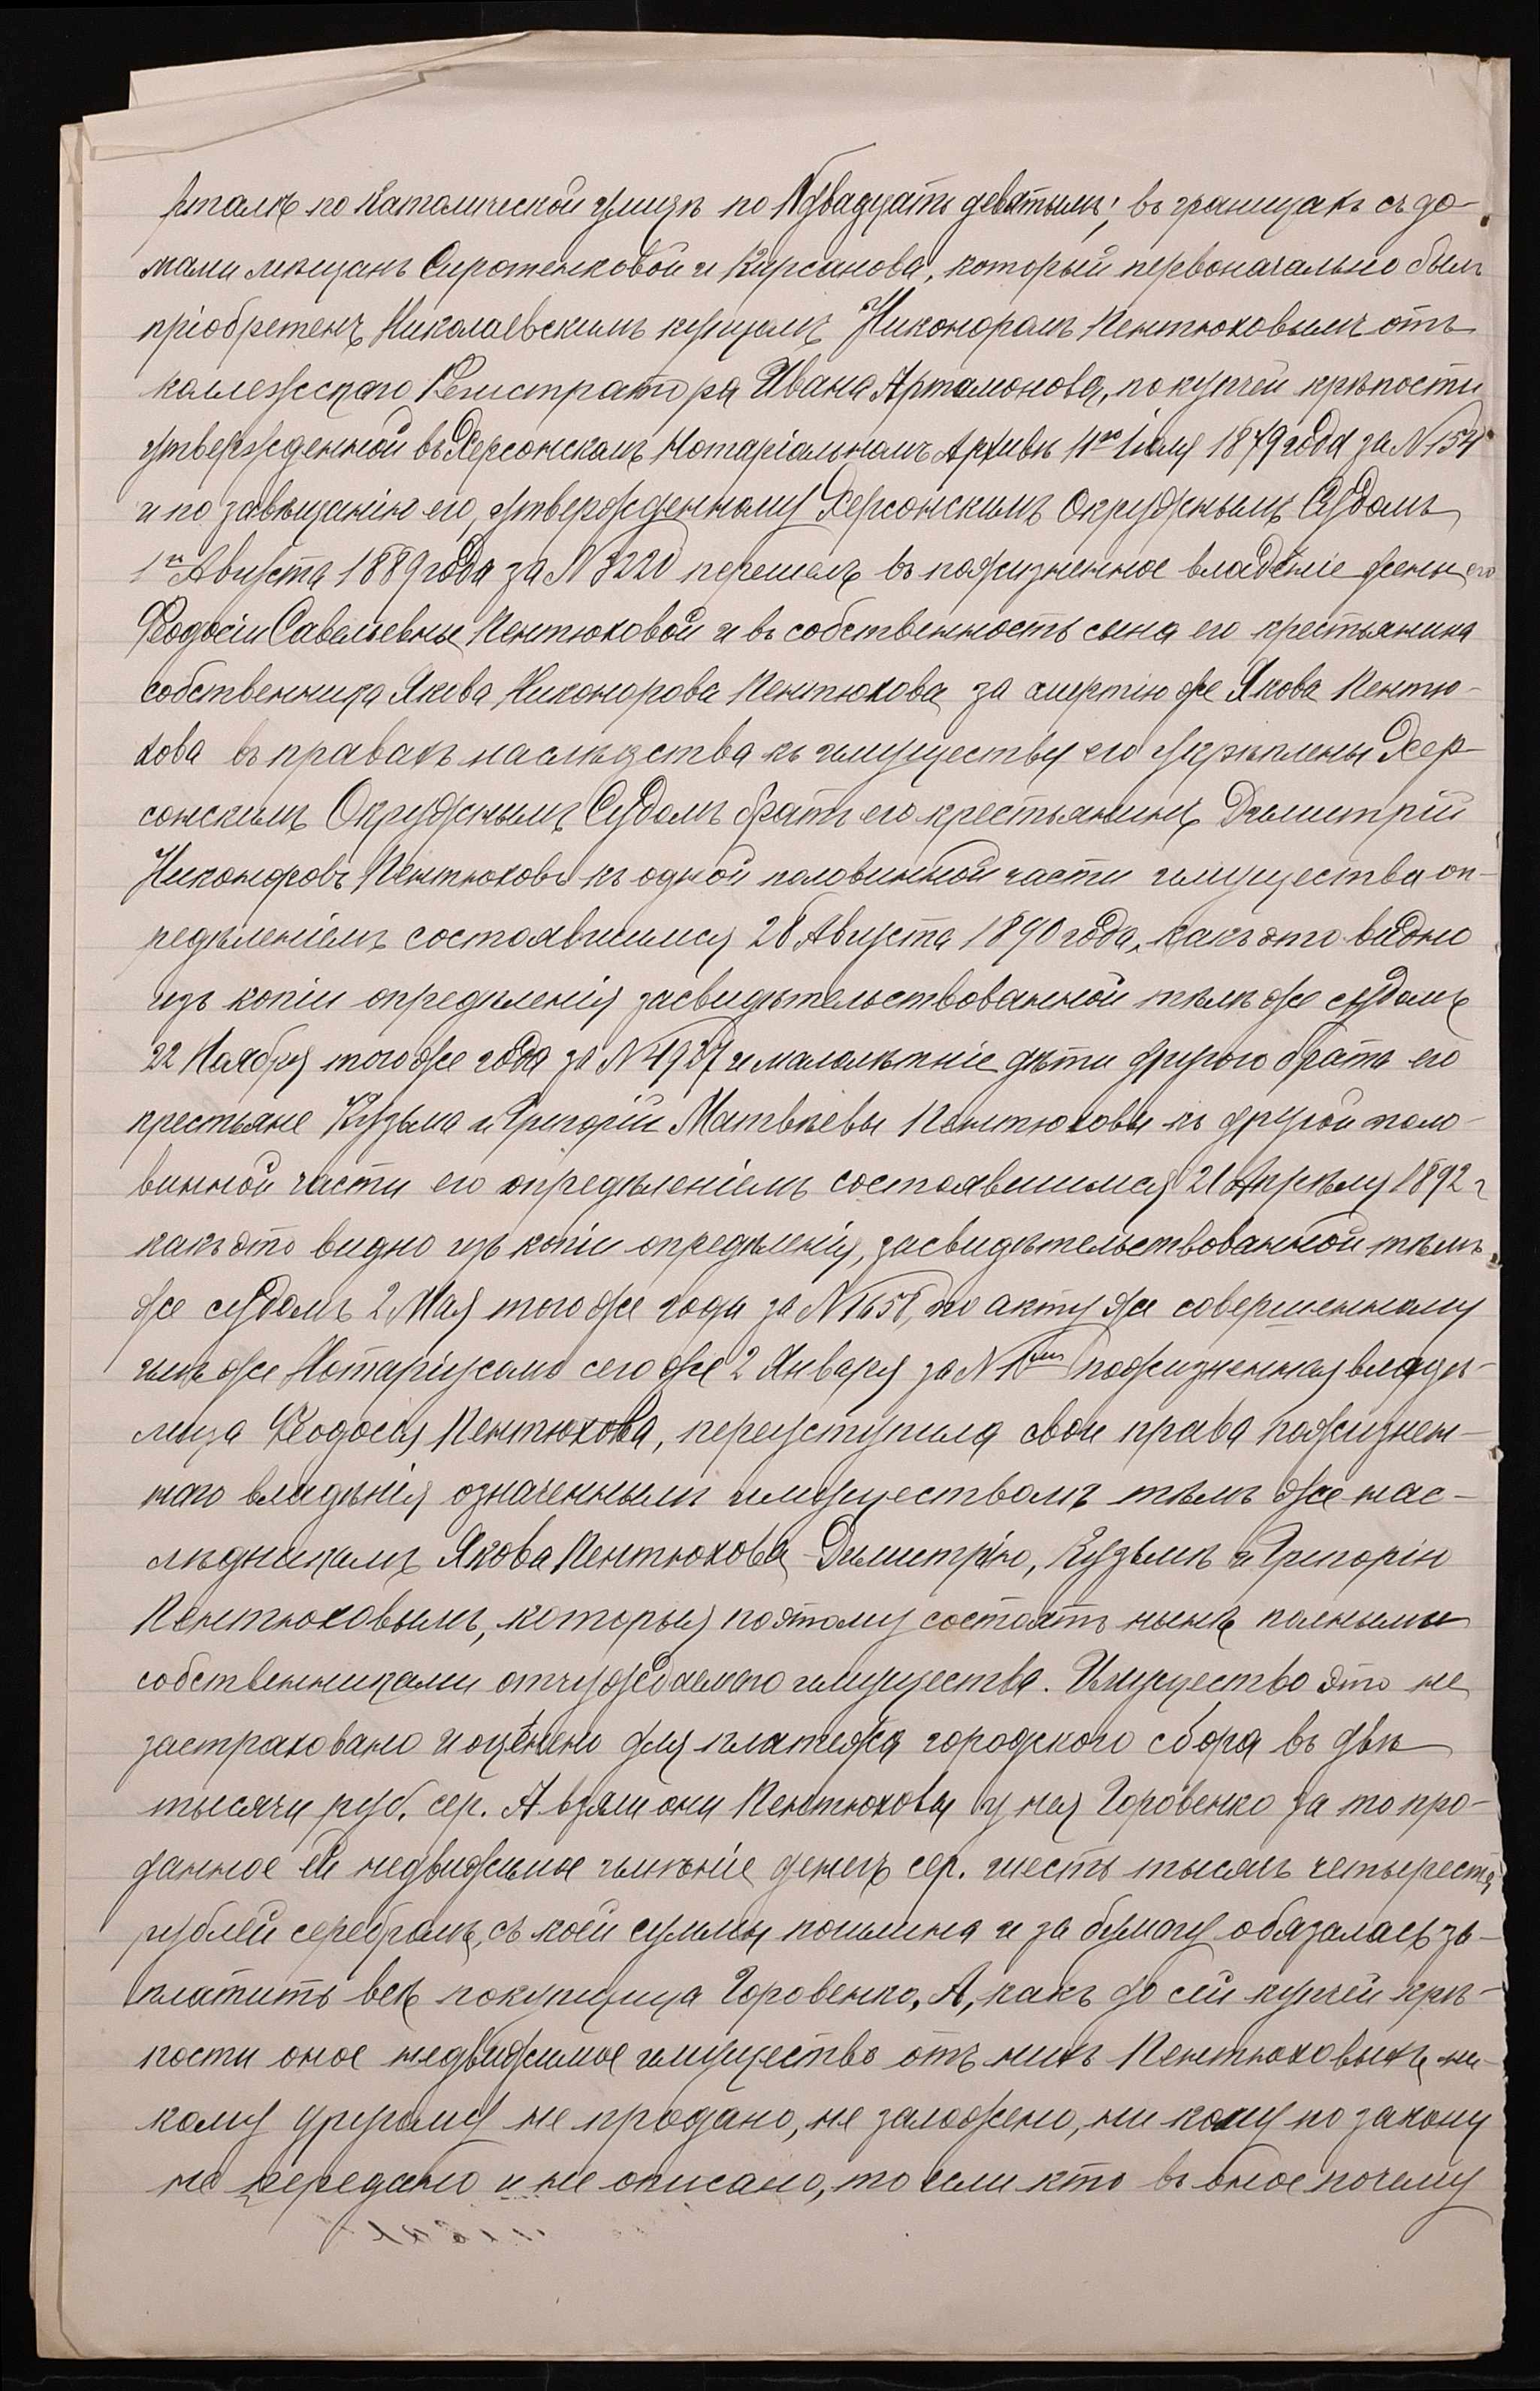 рталѣ по Католической улицѣ по N двадцать девятымъ; въ границахъ съ до-
мами мѣщанъ Сиротенковой и Кирсанова, который первоначально былъ
пріобретенъ Николаевскимъ купцомъ Никоноромъ Пентюховымъ отъ
коллежскаго Регистратора Ивана Артамонова, по купчей крѣпости
утвержденной въ Херсонскомъ Нотаріальномъ Архивѣ 11го Іюля 1879 года за N 154
и по завѣщанію его, утвержденному Херсонскимъ Окружнымъ Судомъ
1го Августа 1889 года за N 3220 перешелъ въ пожизненное владѣніе жены его
Ѳеодосіи Савельевны Пентюховой и въ собственность сына его крестьянина
собственника Якова Никонорова Пентюхова, за смертію же Якова Пентю-
хова въ правахъ наслѣдства къ имуществу его укрѣплены Хер-
сонскимъ Окружнымъ Судомъ братъ его крестьянинъ Димитрій
Никоноровъ Пентюховъ къ одной половинной части имущества оп-
редѣленіемъ состоявшимся 28 Августа 1890 года, какъ это видно
изъ копіи опредѣленія засвидѣтельствованной тѣмъ же судомъ
22 Ноября того же года за N 4937 и малолѣтніе дѣти другого брата его
крестьяне Кузьма и Григорій Матвѣевы Пентюховы къ другой поло-
винной части его опредѣленіемъ состоявшимся 21 Апрѣля 1892 г
какъ это видно изъ копіи опредѣленія, засвидѣтельствованной тѣмъ
же судомъ 2 Мая того же года за N 1658, по акту же совершенному
имъ же Нотаріусомъ сего же 2 Января за N 1ымъ пожизненная владѣ-
лица Ѳеодосія Пентюхова, переуступила свои права пожизнен-
наго владѣнія означеннымъ имуществомъ тѣмъ же нас-
лѣдникамъ Якова Пентюхова Димитрію, Кузьмѣ и Григорію
Пентюховымъ, которыя поэтому состоятъ нынѣ полными
собственниками отчуждаемаго имущества. Имущество это не
застраховано и оцѣнено для платежа городского сбора въ двѣ
тысячи руб. сер. А взяли они Пентюховы у нея Горовенко за то про-
данное ей недвижимое имѣніе денегъ сер. шесть тысячъ четыреста
рублей серебромъ, съ коей суммы пошлина и за бумагу обязалась за-
платить все покупщица Горовенко. А, какъ до сей купчей крѣ-
пости оное недвижимое имущество отъ нихъ Пентюховыхъ ни-
кому другому не продано, не заложено, ни кому по закону
не передано и не описано, то если кто въ оное почему